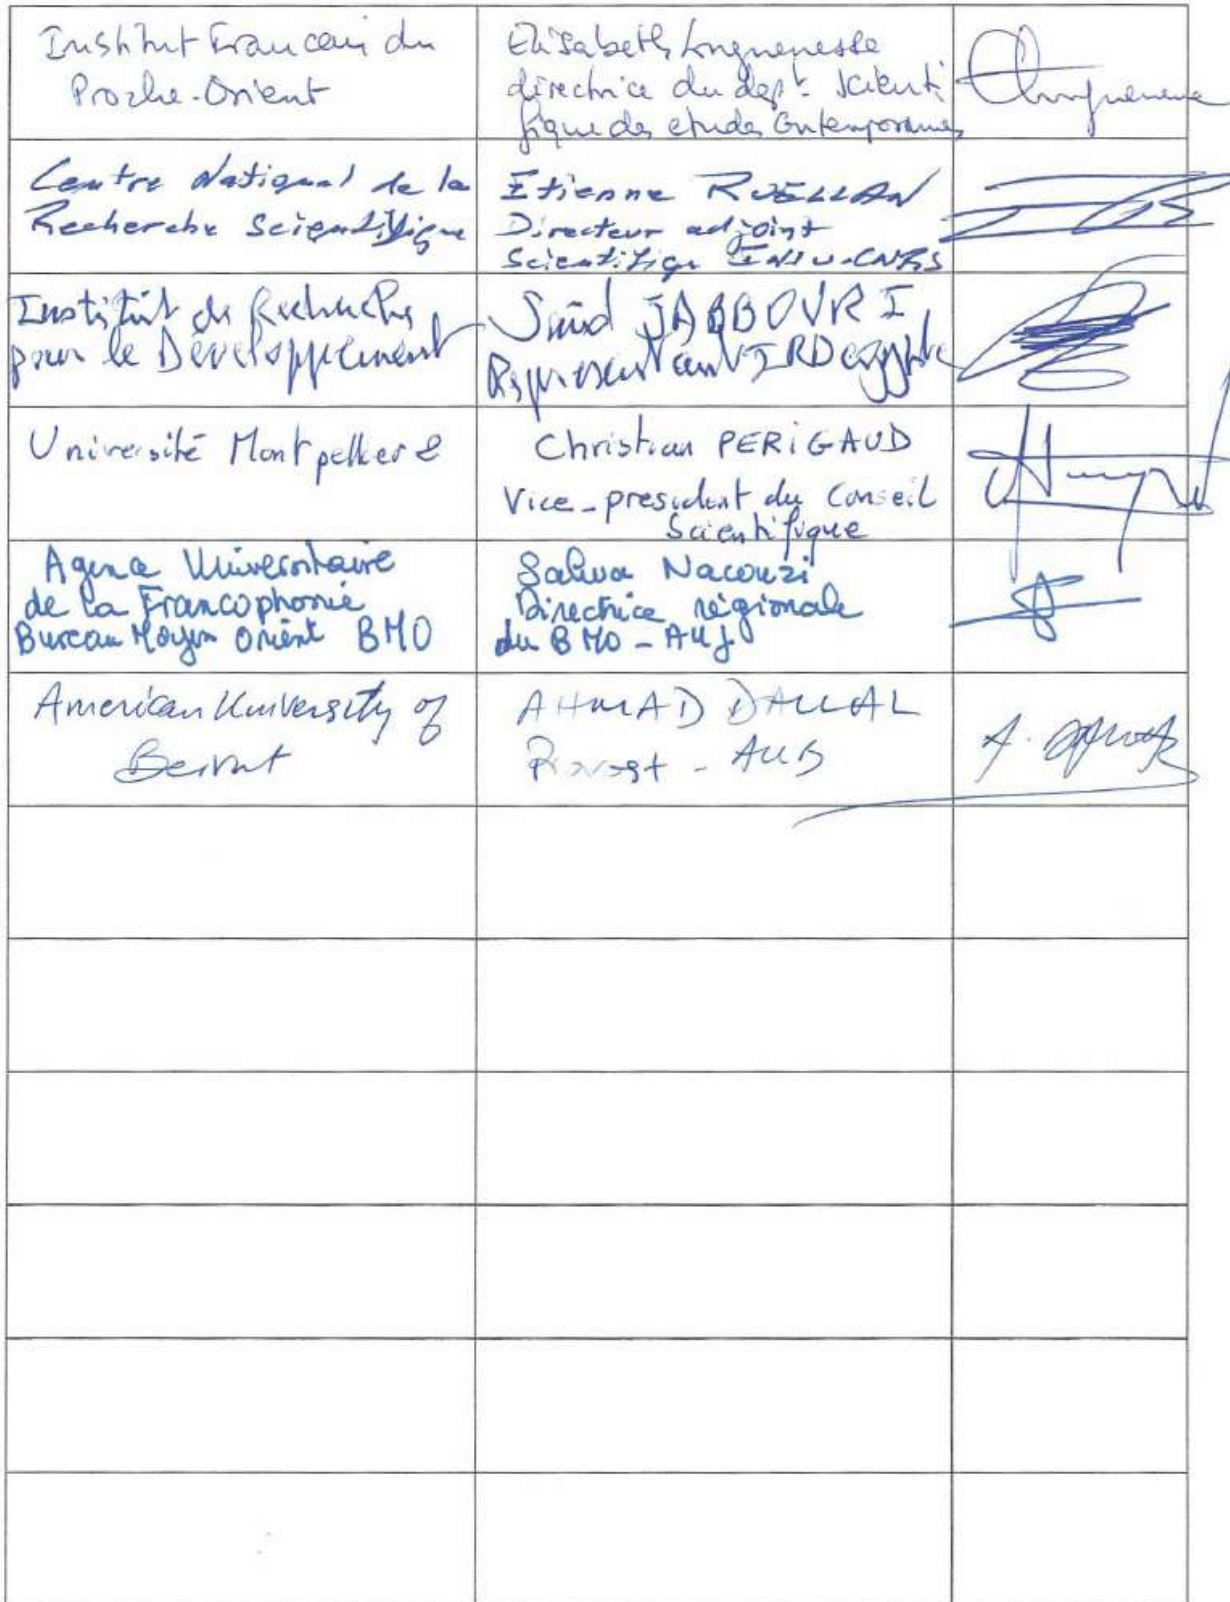 Institut Francais du
Proche-Orient
Elisabeth Longuenesse
directrice du dept. scienti
fique des etudes Contemporaines
Centre National de la
Recherche Scientifique
Etienne RUELLAN
Directeur adjoint
Scientifique INSU-CNRS
Institut de Recherche
pour le Développement
JABBOURI
Representant IRD egypte
Université Montpellier 2
Christian PERIGAUD
Vice-president du Conseil
Scientifique
Agence Universitaire
de la Francophonie
Bureau Moyen Orient BMO
Salwa Nacouzi
Directrice régionale
du BMO - AUF
American University of
Beirut
AHMAD DALLAL
Provost - AUB